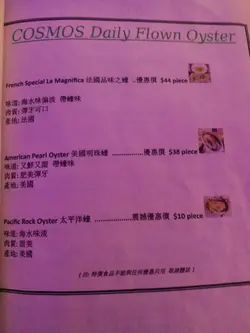 COSMOS Daily Flown Oyster
French Special La Magnifica 法國品味之蠔 ..優惠價 $44 piece
味道: 海水味偏淡 帶蠔味
肉質: 彈牙可口
產地: 法國
American Pearl Oyster 美國明珠蠔 ..............優惠價 $38 piece
味道: 又鮮又甜 帶蠔味
肉質: 肥美彈牙
產地: 美國
Pacific Rock Oyster 太平洋蠔 ..........震撼優惠價 $10 piece
味道: 海水味濃
肉質: 甜美
產地: 美國
( 註: 特價食品不能與任何優惠共用 敬請體諒 )